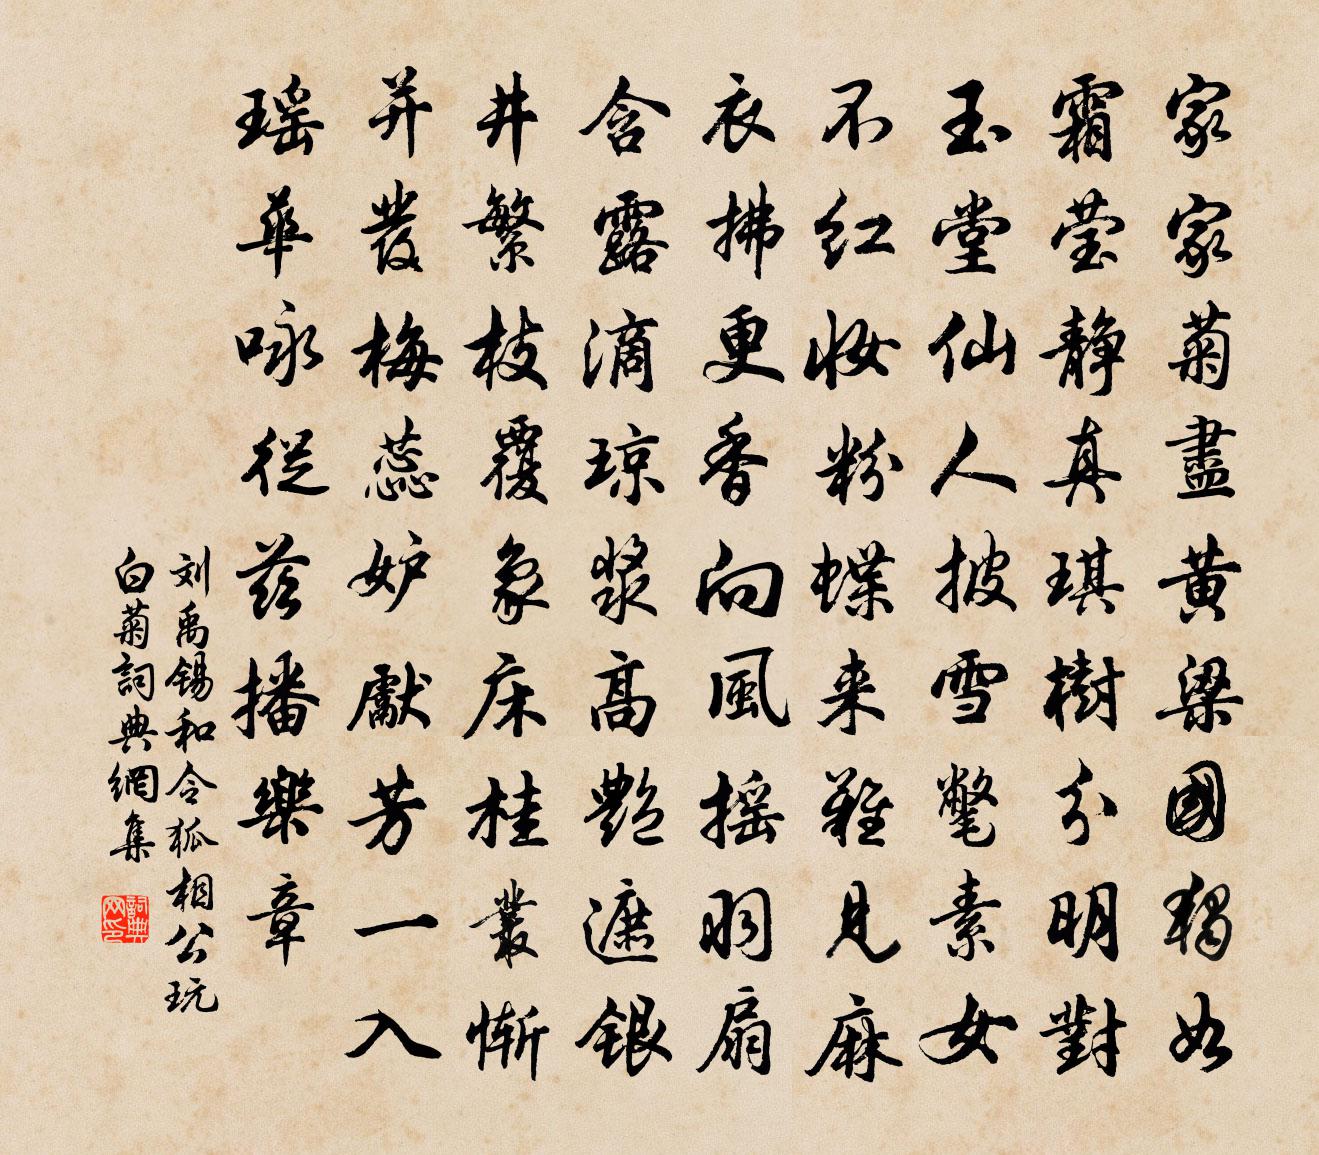 家家菊盡黄梁國獨如
霜莹静真琪樹分明對
玉堂仙人披雪氅素女
不红妝粉蝶来難見麻
衣拂更香向風摇羽扇
含露滴琼漿高艶遮銀
井繁枝覆象床桂叢慚
并發梅蕊妒獻芳一入
瑶華咏從兹播樂章
刘禹锡和令狐相公玩
白菊詞典網集
詞典网印